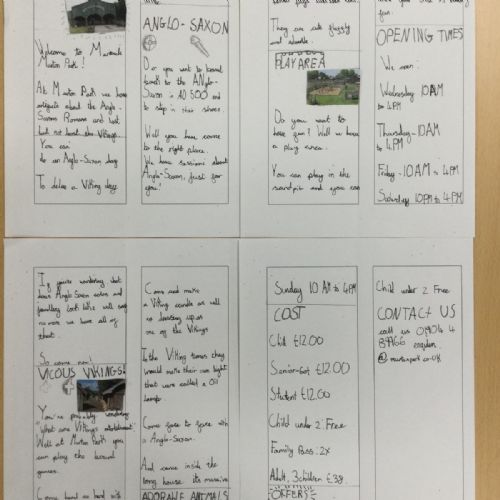 Welcome to Murrack
Murton Park!
At Murton Park we have
artifacts about the Anglo-
Saxons Romans and last
but not least the Vikings.
You can
do an Anglo-Saxon day
To do a Viking day
ANGLO-SAXON
Do you want to travel
back to the ANglo-
Saxon in AD 500 and
to step in their shoes.
Well you have come
to the right place.
We have sessions about
Anglo-Saxon, just for
you!
They are cute fluggly
and
PLAY AREA
Do you want to
have fun? Well we have
a play area.
You can play in the
sandpit and you can
fun.
OPENING TIMES
We open:
Wednesday 10AM
to 4PM
Thursday - 10AM
to 4PM
Friday - 10AM to 4PM
Saturday 10PM to 4PM
If you're wondering what
does Anglo Saxon
look like will
no more we have all of
that.
So come now!
VICOUS VIKINGS!
You're probably wondering
"What are Vikings entertainment"
Well at Murton Park you
can play the board
games.
Come and make
a Viking candle as well
as dressing up as
one of the Vikings
In the Viking times they
would make their own light
that were called a Oil
lamp.
Come face to face with
a Anglo-Saxon.
And come inside the
long house its massive
ADORABLE ANIMALS
Sunday 10 AM to 4PM
COST
Child £12.00
Senior-Cost £12.00
Student £12.00
Child under 2: Free
Family Pass: 2x
Adult, 3children £38
OFFERS
Child under 2 Free
CONTACT US
call us 01904 4
89966
@ murtonpark.co-uk